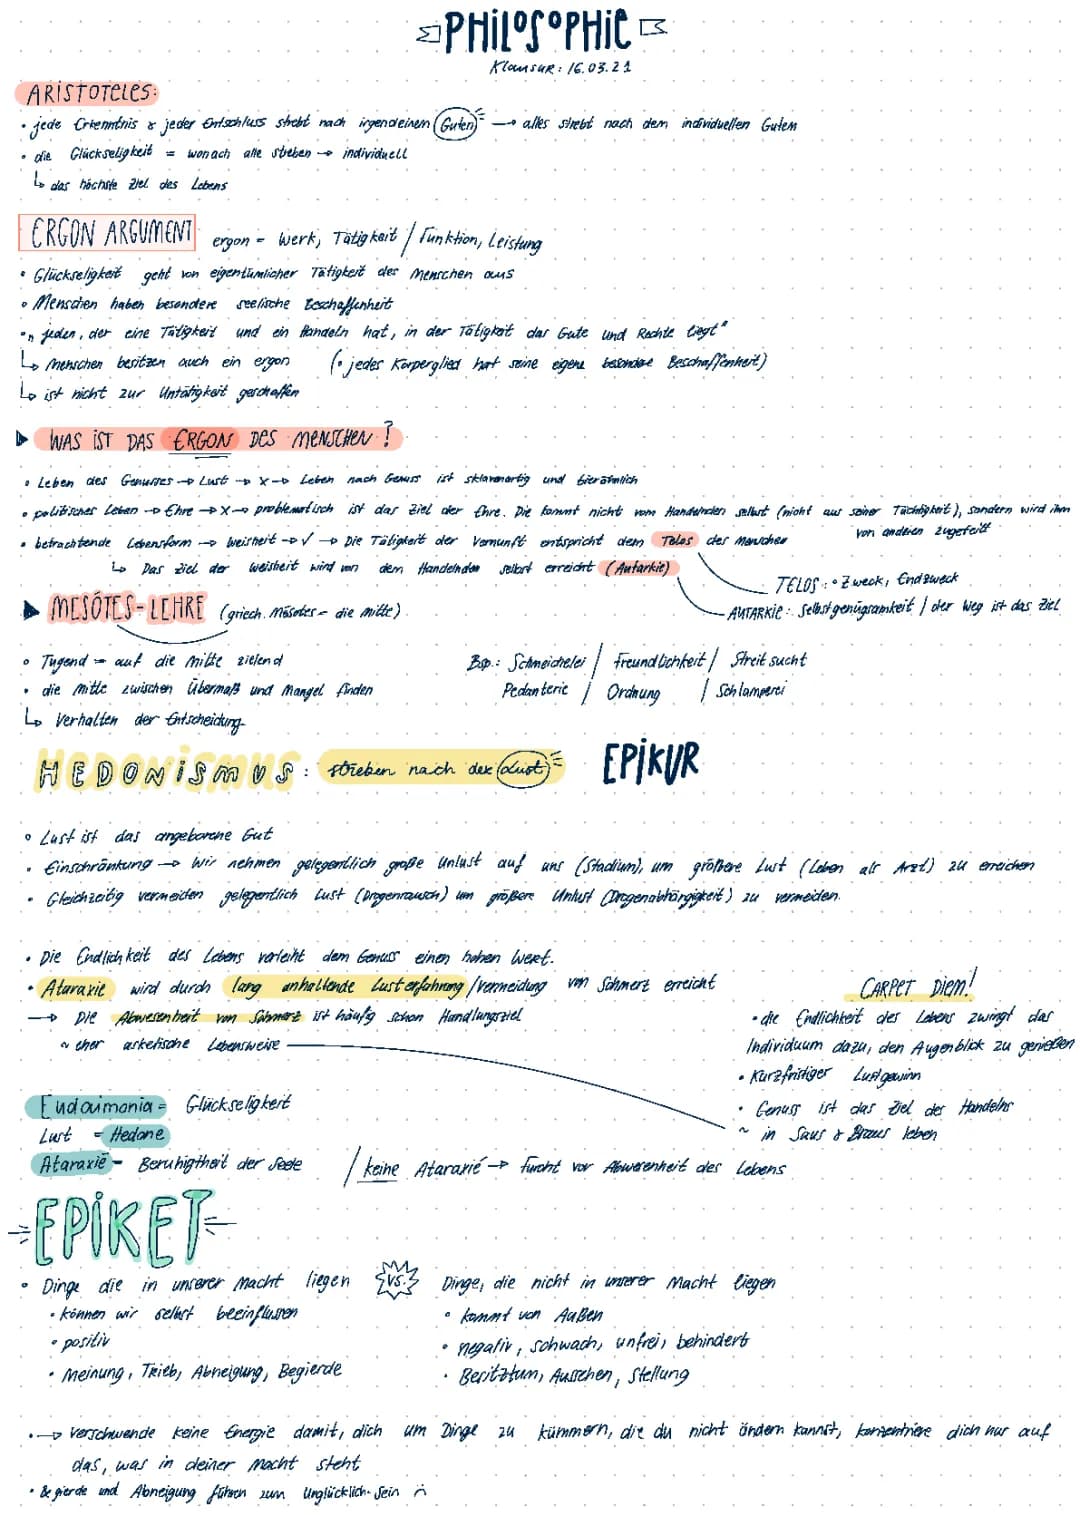 PHILOSOPHIE
Klausur: 16.03.21
ARISTOTELES:
• jede Erkenntnis & jeder Entschluss strebt nach irgendeinem Guten → alles strebt nach dem individuellen Gutem
• die Glückseligkeit = wonach alle streben → individuell
↳ das höchste Ziel des Lebens
ERGON ARGUMENT ergon = Werk, Tätigkeit / Funktion, Leistung
• Glückseligkeit geht von eigentümlicher Tätigkeit des Menschen aus
• Menschen haben besondere seelische Beschaffenheit
• „jeden, der eine Tätigkeit und ein Handeln hat, in der Tätigkeit das Gute und Rechte liegt"
↳ Menschen besitzen auch ein ergon (• jedes Körperglied hat seine eigene besondere Beschaffenheit)
↳ ist nicht zur Untätigkeit geschaffen
WAS IST DAS ERGON DES MENSCHEN?
• Leben des Genusses → Lust → X → Leben nach Genuss ist sklavenartig und tierähnlich
• politisches Leben → Ehre → X → problematisch ist das Ziel der Ehre. Die kommt nicht vom Handelnden selbst (nicht aus seiner Tüchtigkeit), sondern wird ihm
von anderen zugeteilt
• betrachtende Lebensform → Weisheit → ✓ → Die Tätigkeit der Vernunft entspricht dem Telos des Menschen
↳ Das Ziel der Weisheit wird von dem Handelnden selbst erreicht (Autarkie)
TELOS: • Zweck, Endzweck
AUTARKIE: Selbstgenügsamkeit / der Weg ist das Ziel
MESÓTES-LEHRE (griech. Mésotes = die Mitte)
• Tugend = auf die Mitte zielend
• die Mitte zwischen Übermaß und Mangel finden
↳ Verhalten der Entscheidung
Bsp.: Schmeichelei / Freundlichkeit / Streitsucht
Pedanterie / Ordnung / Schlamperei
HEDONISMUS: streben nach der Lust EPIKUR
• Lust ist das angeborene Gut
• Einschränkung → Wir nehmen gelegentlich große Unlust auf uns (Stadium), um größere Lust (Leben als Arzt) zu erreichen
• Gleichzeitig vermeiden gelegentlich Lust (Drogenrausch) um größere Unlust (Drogenabhängigkeit) zu vermeiden.
• Die Endlichkeit des Lebens verleiht dem Genuss einen hohen Wert.
• Ataraxie wird durch lang anhaltende Lusterfahrung / Vermeidung von Schmerz erreicht
→ Die Abwesenheit von Schmerz ist häufig schon Handlungsziel
~ eher asketische Lebensweise
CARPET DIEM!
• die Endlichkeit des Lebens zwingt das
Individuum dazu, den Augenblick zu genießen
• Kurzfristiger Lustgewinn
• Genuss ist das Ziel des Handelns
~ in Saus & Braus leben
Eudaimonia = Glückseligkeit
Lust = Hedone
Ataraxie = Beruhigtheit der Seele / keine Ataraxie → Furcht vor Abwesenheit des Lebens
EPIKET
• Dinge die in unserer Macht liegen vs. Dinge, die nicht in unserer Macht liegen
• können wir selbst beeinflussen
• positiv
• Meinung, Trieb, Abneigung, Begierde
• kommt von Außen
• negativ, schwach, unfrei, behindert
• Besitztum, Aussehen, Stellung
• → Verschwende keine Energie damit, dich um Dinge zu kümmern, die du nicht ändern kannst, konzentriere dich nur auf
das, was in deiner Macht steht
• Begierde und Abneigung führen zum Unglücklich-Sein